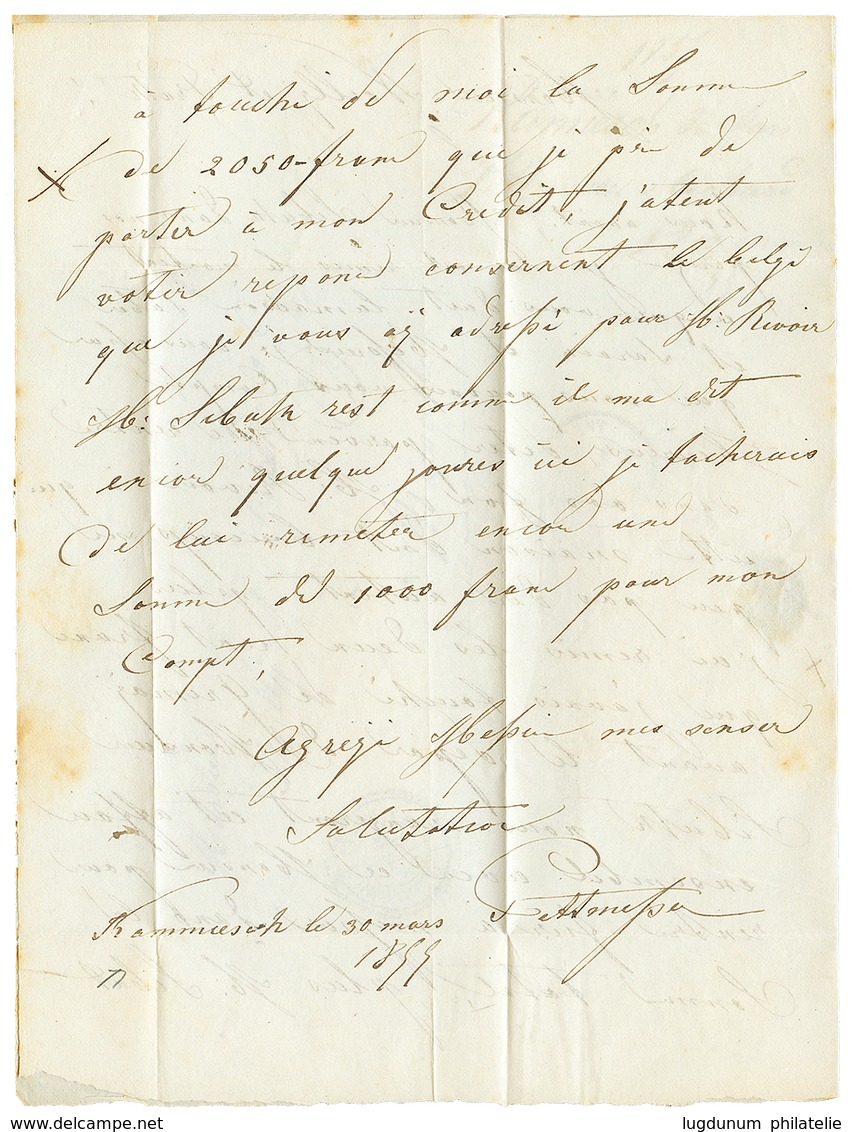 à touché de moi la Somme
de 2050-franc que je prie de
porter à mon Credit, j'atent
voter repone consernent le belge
que je vous aÿ adressé pour Mr. Revoir
Mr. Sibuth rest comme il ma dit
encor quelque joures ici je tacherais
de lui remeter encor une
Somme de 1000 franc pour mon
Compt,
Agreje Messieu mes senser
Salutation
Kammiesch le 30 mars
1855
www.delcampe.net
lugdunum philatelie